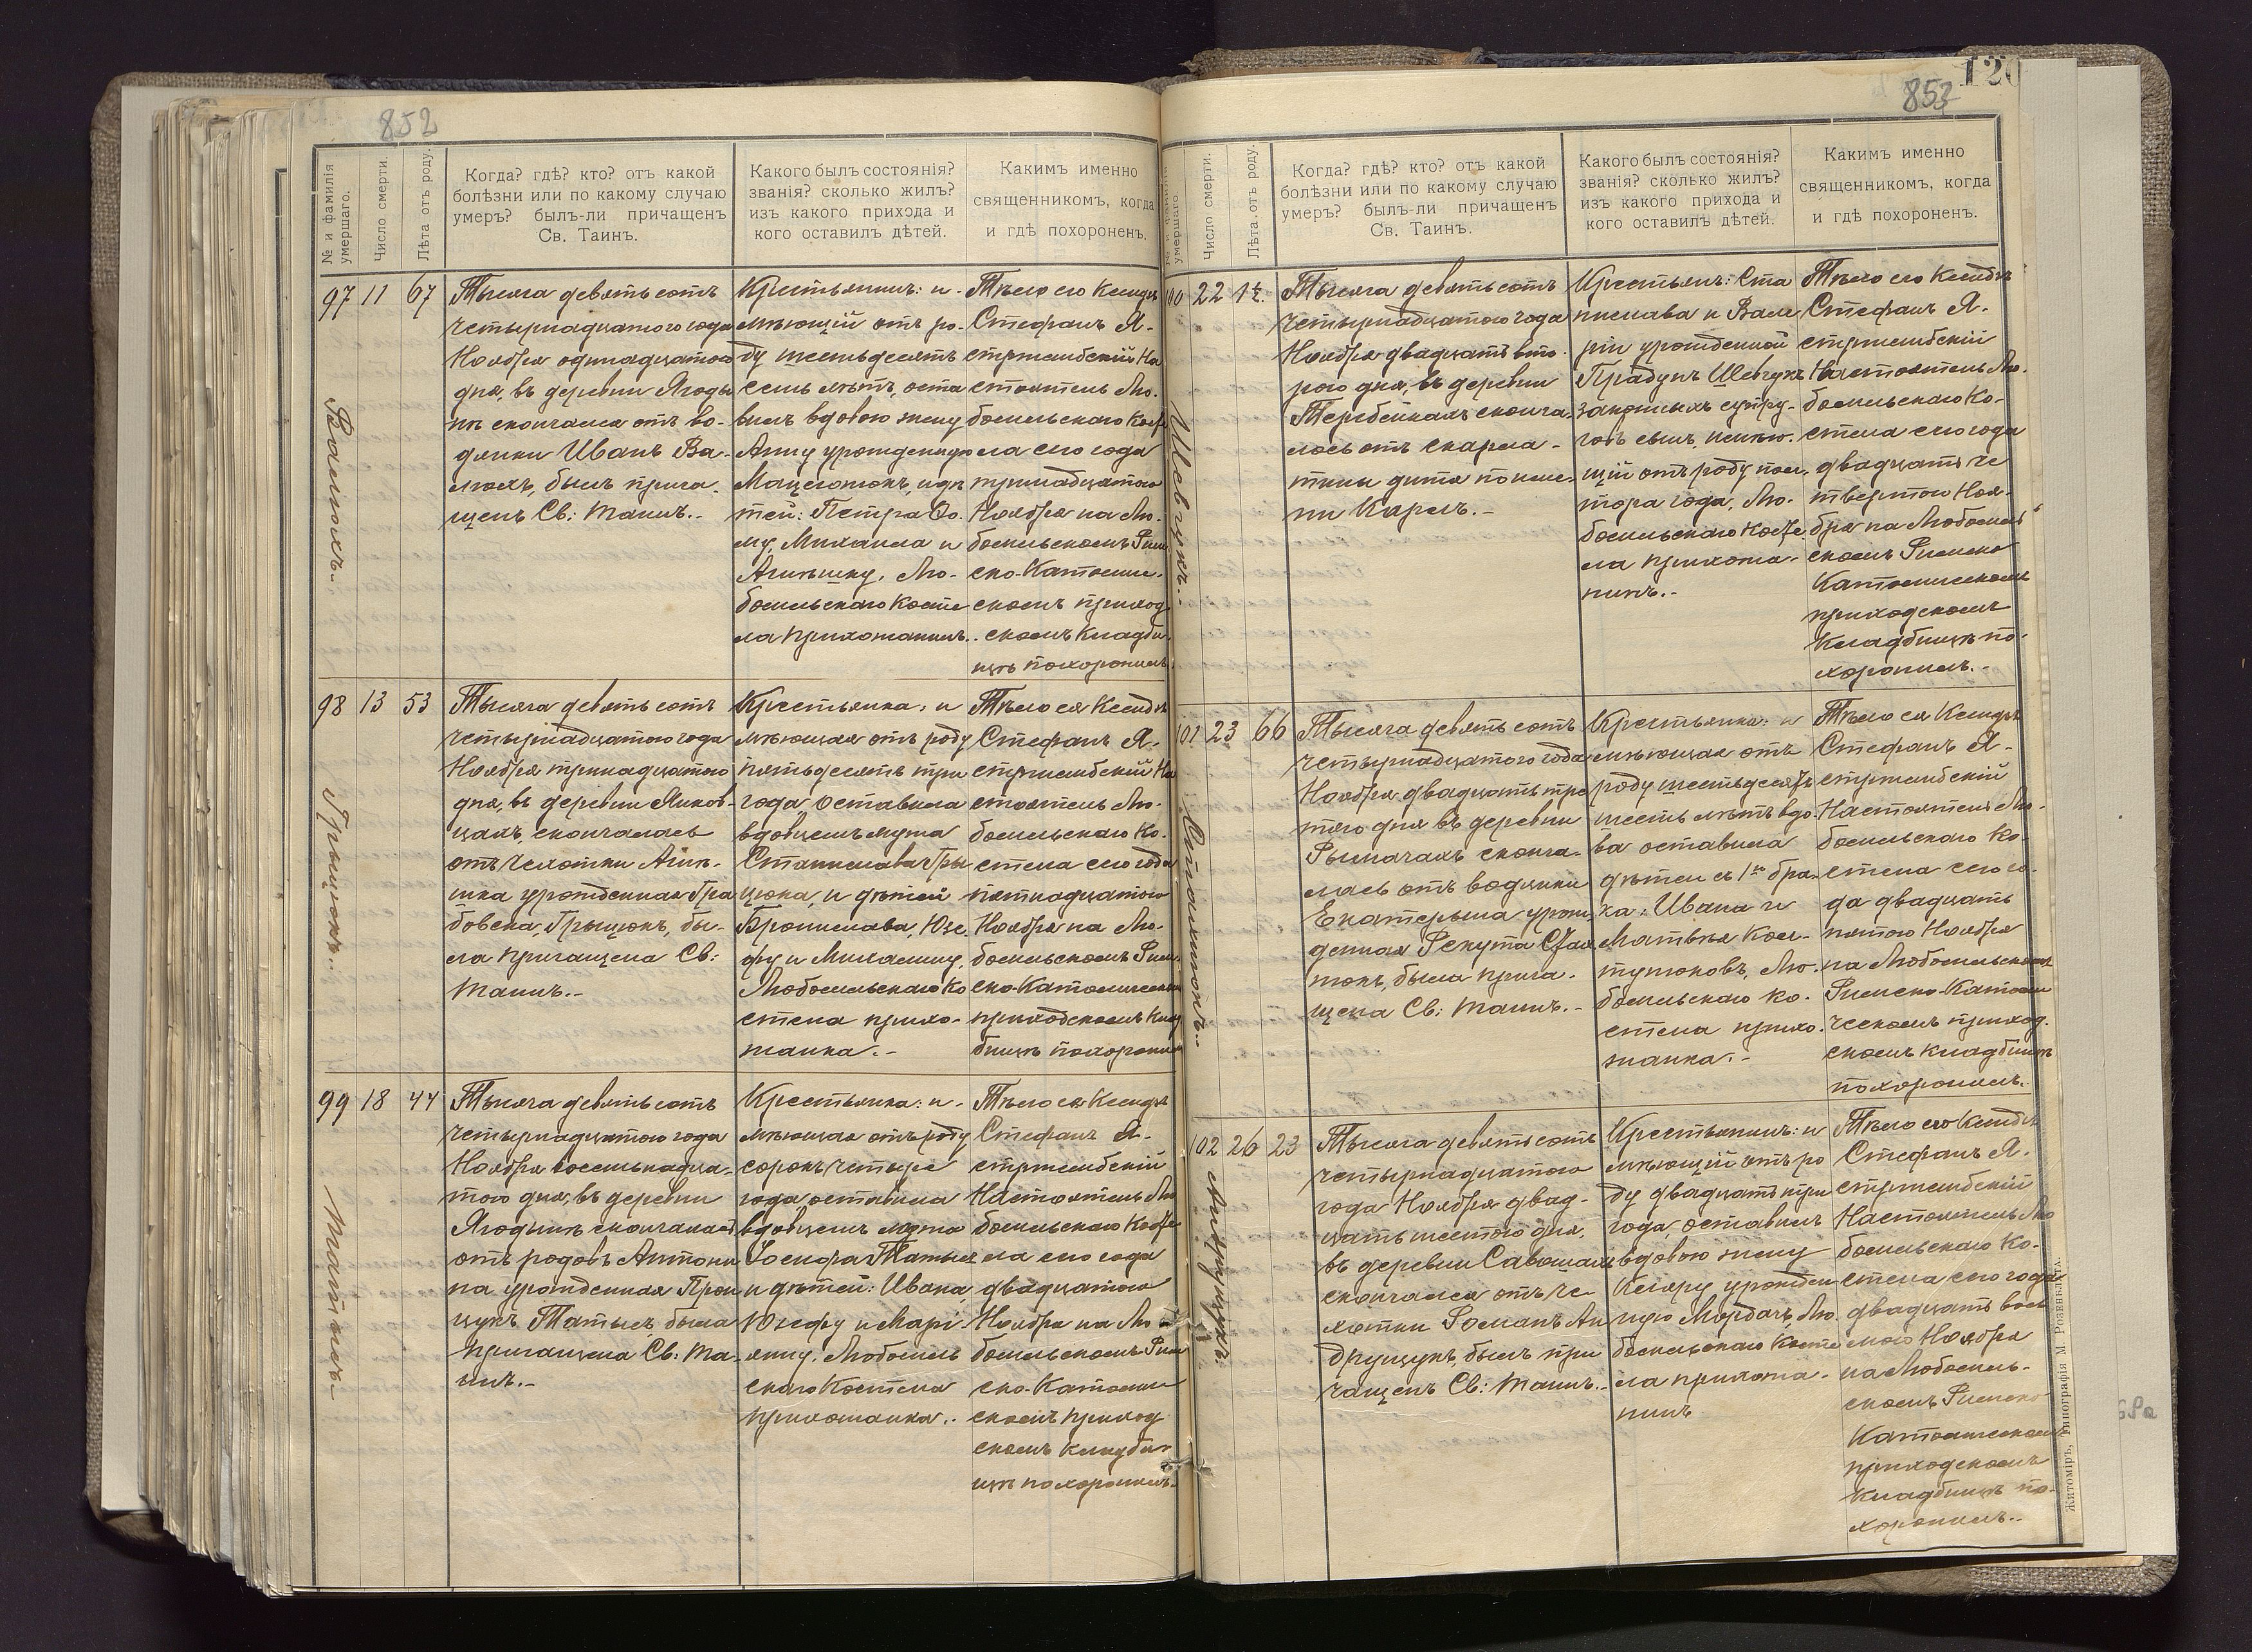 852
№ и фамилія умершаго.
Число смерти.
Лѣта отъ роду.
Когда? гдѣ? кто? отъ какой
болѣзни или по какому случаю
умеръ? былъ-ли причащенъ
Св. Таинъ.
Какого былъ состоянія?
званія? сколько жилъ?
изъ какого прихода и
кого оставилъ дѣтей.
Какимъ именно
священникомъ, когда
и гдѣ похороненъ.
97
11
67
Тысяча девятьсотъ
четырнадцатого года
Ноября одинадцатого
дня, въ деревни Ягоды
нѣ скончался отъ во-
дянки Иванъ Ва-
люхъ, былъ прича-
щенъ Св: Таинъ.-
Крестьянинъ: и-
мѣющій отъ ро-
ду шестьдесятъ
семь лѣтъ, оста
вилъ вдовою жену
Анну урожденную
дѣ
тей: Петра Ѳо-
му, Михаила и
Агнѣшку, Лю-
бомльскаго косте
ла прихожанинъ.
Тѣло его Ксендзъ
Стефанъ Я-
стржембскій На
стоятель Лю-
бомльскаго косте
ла сего года
тринадцатого
Ноября на Лю-
бомльскомъ Рим
ско-Католиче-
скомъ приход
скомъ кладби-
щѣ похоронилъ
Валюхъ.-
98
13
53
Тысяча девятьсотъ
четырнадцатого года
Ноября тринадцатого
дня, въ деревни Янков-
цахъ, скончалась
отъ чехотки Агнѣ-
шка урожденная Гра
бовска, Грыцюкъ, бы-
ла причащена Св:
Таинъ.-
Крестьянка: и
мѣющая отъ роду
пятьдесятъ три
года оставила
вдовцемъ мужа
Станислава Гры
цюка, и дѣтей
Бронислава, Юзе
фу и Михалину,
Любомльскаго ко
стела прихо-
жанка.-
Тѣло ея Ксендзъ
Стефанъ Я-
стржембскій На
стоятель Лю-
бомльскаго ко-
стела сего года
пятнадцатого
Ноября на Лю-
бомльскомъ Рим
ско-Католическомъ
приходскомъ клад
бищѣ похоронилъ
Грыцюкъ.-
99
18
44
Тысяча девятьсотъ
четырнадцатого года
Ноября восемьнадца-
того дня, въ деревни
Ягодынѣ скончалась
отъ родовъ Антони
на урожденная Прон
цукъ Матысъ, была
причащена Св: Та-
инъ.-
Крестьянка: и-
мѣющая отъ роду
сорокъ четыре
года, оставила
вдовцемъ мужа
Іосифа
и дѣтей: Ивана,
Юзефу и Марі-
янну. Любомль
скаго костела
прихожанка.-
Тѣло ея Ксендзъ
Стефанъ Я-
стржембскій
Настоятель Лю
бомльскаго косте
ла сего года
двадцатого
Ноября на Лю
бомльскомъ Рим
ско-Католиче
скомъ приход
скомъ кладби-
щѣ похоронилъ.
853
120
№ и фамилія умершаго.
Число смерти.
Лѣта отъ роду.
Когда? гдѣ? кто? отъ какой
болѣзни или по какому случаю
умеръ? былъ-ли причащенъ
Св. Таинъ.
Какого былъ состоянія?
званія? сколько жилъ?
изъ какого прихода и
кого оставилъ дѣтей.
Какимъ именно
священникомъ, когда
и гдѣ похороненъ.
100
22
1½
Тысяча девятьсотъ
четырнадцатого года
Ноября двадцать вто-
рого дня, въ деревни
Теребейкахъ сконча-
лось отъ скарла-
тины дитя по име-
ни Кароль.-
Крестьянъ: Ста
нислава и Вале
ріи урожденной
Прадунъ Шевчукъ
законныхъ супру-
говъ сынъ, имѣю-
щій отъ роду пол-
тора года, Лю-
бомльскаго косте
ла прихожа-
нинъ.-
Тѣло его Ксендзъ
Стефанъ Я-
стржембскій
Настоятель Лю-
бомльскаго ко-
стела сего года
двадцать че
твертого Ноя-
бря на Любомль
скомъ Римско
Католическомъ
приходскомъ
кладбищѣ по-
хоронилъ.-
Шевчукъ.-
101
23
66
Тысяча девятьсотъ
четырнадцатого года
Ноября двадцать тре
тяго дня въ деревни
Рымачахъ сконча-
лась отъ водянки
Екатерина урож
денная Рекута Стал
тюкъ, была прича-
щена Св: Таинъ.-
Крестьянка: и
мѣющая отъ
роду шестьдесятъ
шесть лѣтъ вдо-
ва оставила
дѣтей съ 1го бра-
ка: Ивана и
Матвѣя Кол-
тунюковъ, Лю-
бомльскаго ко-
стела прихо-
жанка.-
Тѣло ея Ксендзъ
Стефанъ Я-
стржембскій
Настоятель Лю-
бомльскаго ко-
стела сего го-
да двадцать
пятого Ноября
на Любомльскомъ
Римско-Католи
ческомъ приход-
скомъ кладбищѣ
похоронилъ.
102
26
23
Тысяча девятьсотъ
четырнадцатого
года Ноября двад-
цать шестого дня,
въ деревни Савошахъ
скончался отъ че
хотки Романъ Ан
друщукъ, былъ при
чащенъ Св: Таинъ.-
Крестьянинъ: и
мѣющій отъ ро
ду двадцать три
года, оставилъ
вдовою жену
урожден
ную Мордачъ, Лю-
бомльскаго косте
ла прихожа-
нинъ
Тѣло его Ксендзъ
Стефанъ Я-
стржембскій
Настоятель Лю
бомльскаго ко-
стела сего года
двадцать вось
мого Ноября
на Любомль-
скомъ Римско
Католическомъ
приходскомъ
кладбищѣ по-
хоронилъ.-
Андрущукъ.
Житоміръ, Типографія М. Розенблата.